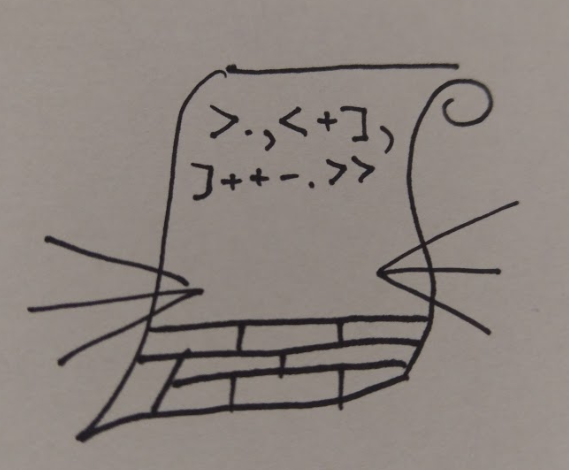 >.,<+],
]++-.>>